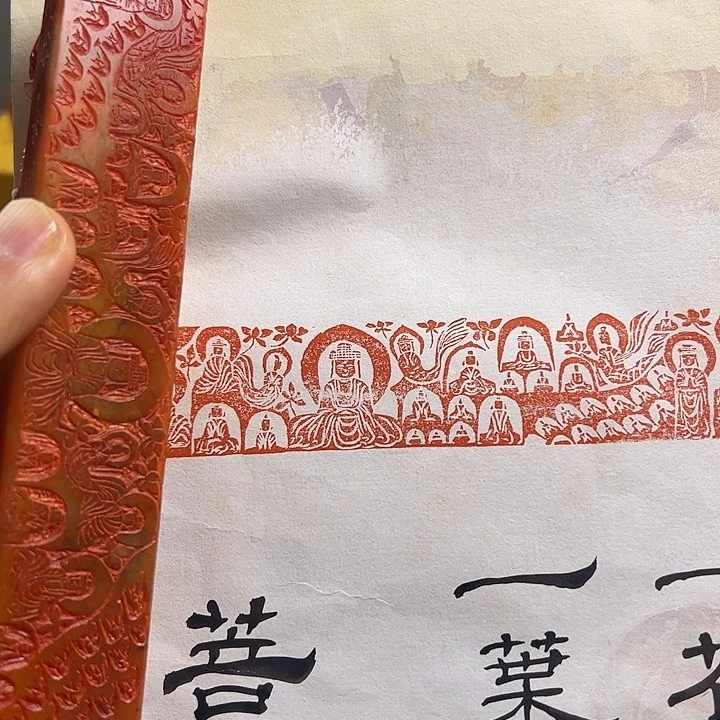 一
一葉
菩